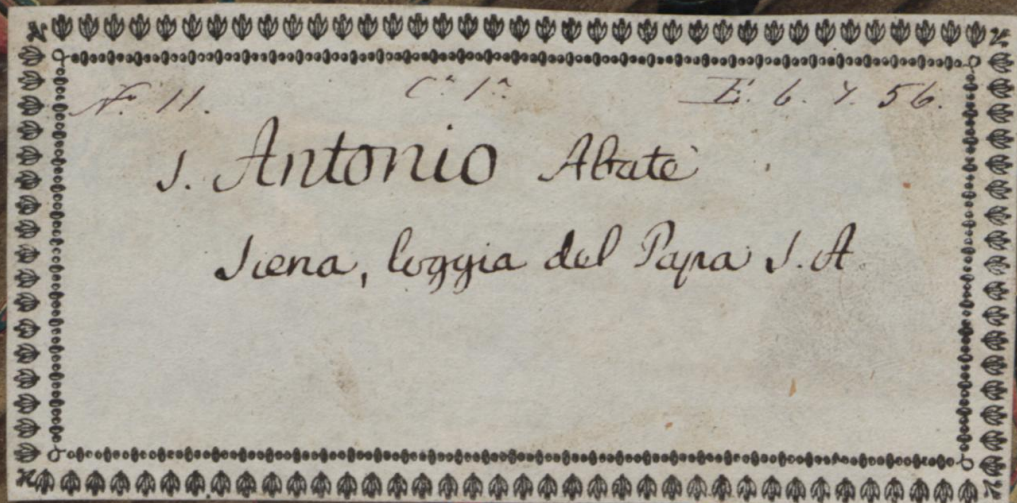 N.° 11. C.ª 1.ª E. 6. 4. 56.
S. Antonio Abate
Siena, loggia del Papa S. A